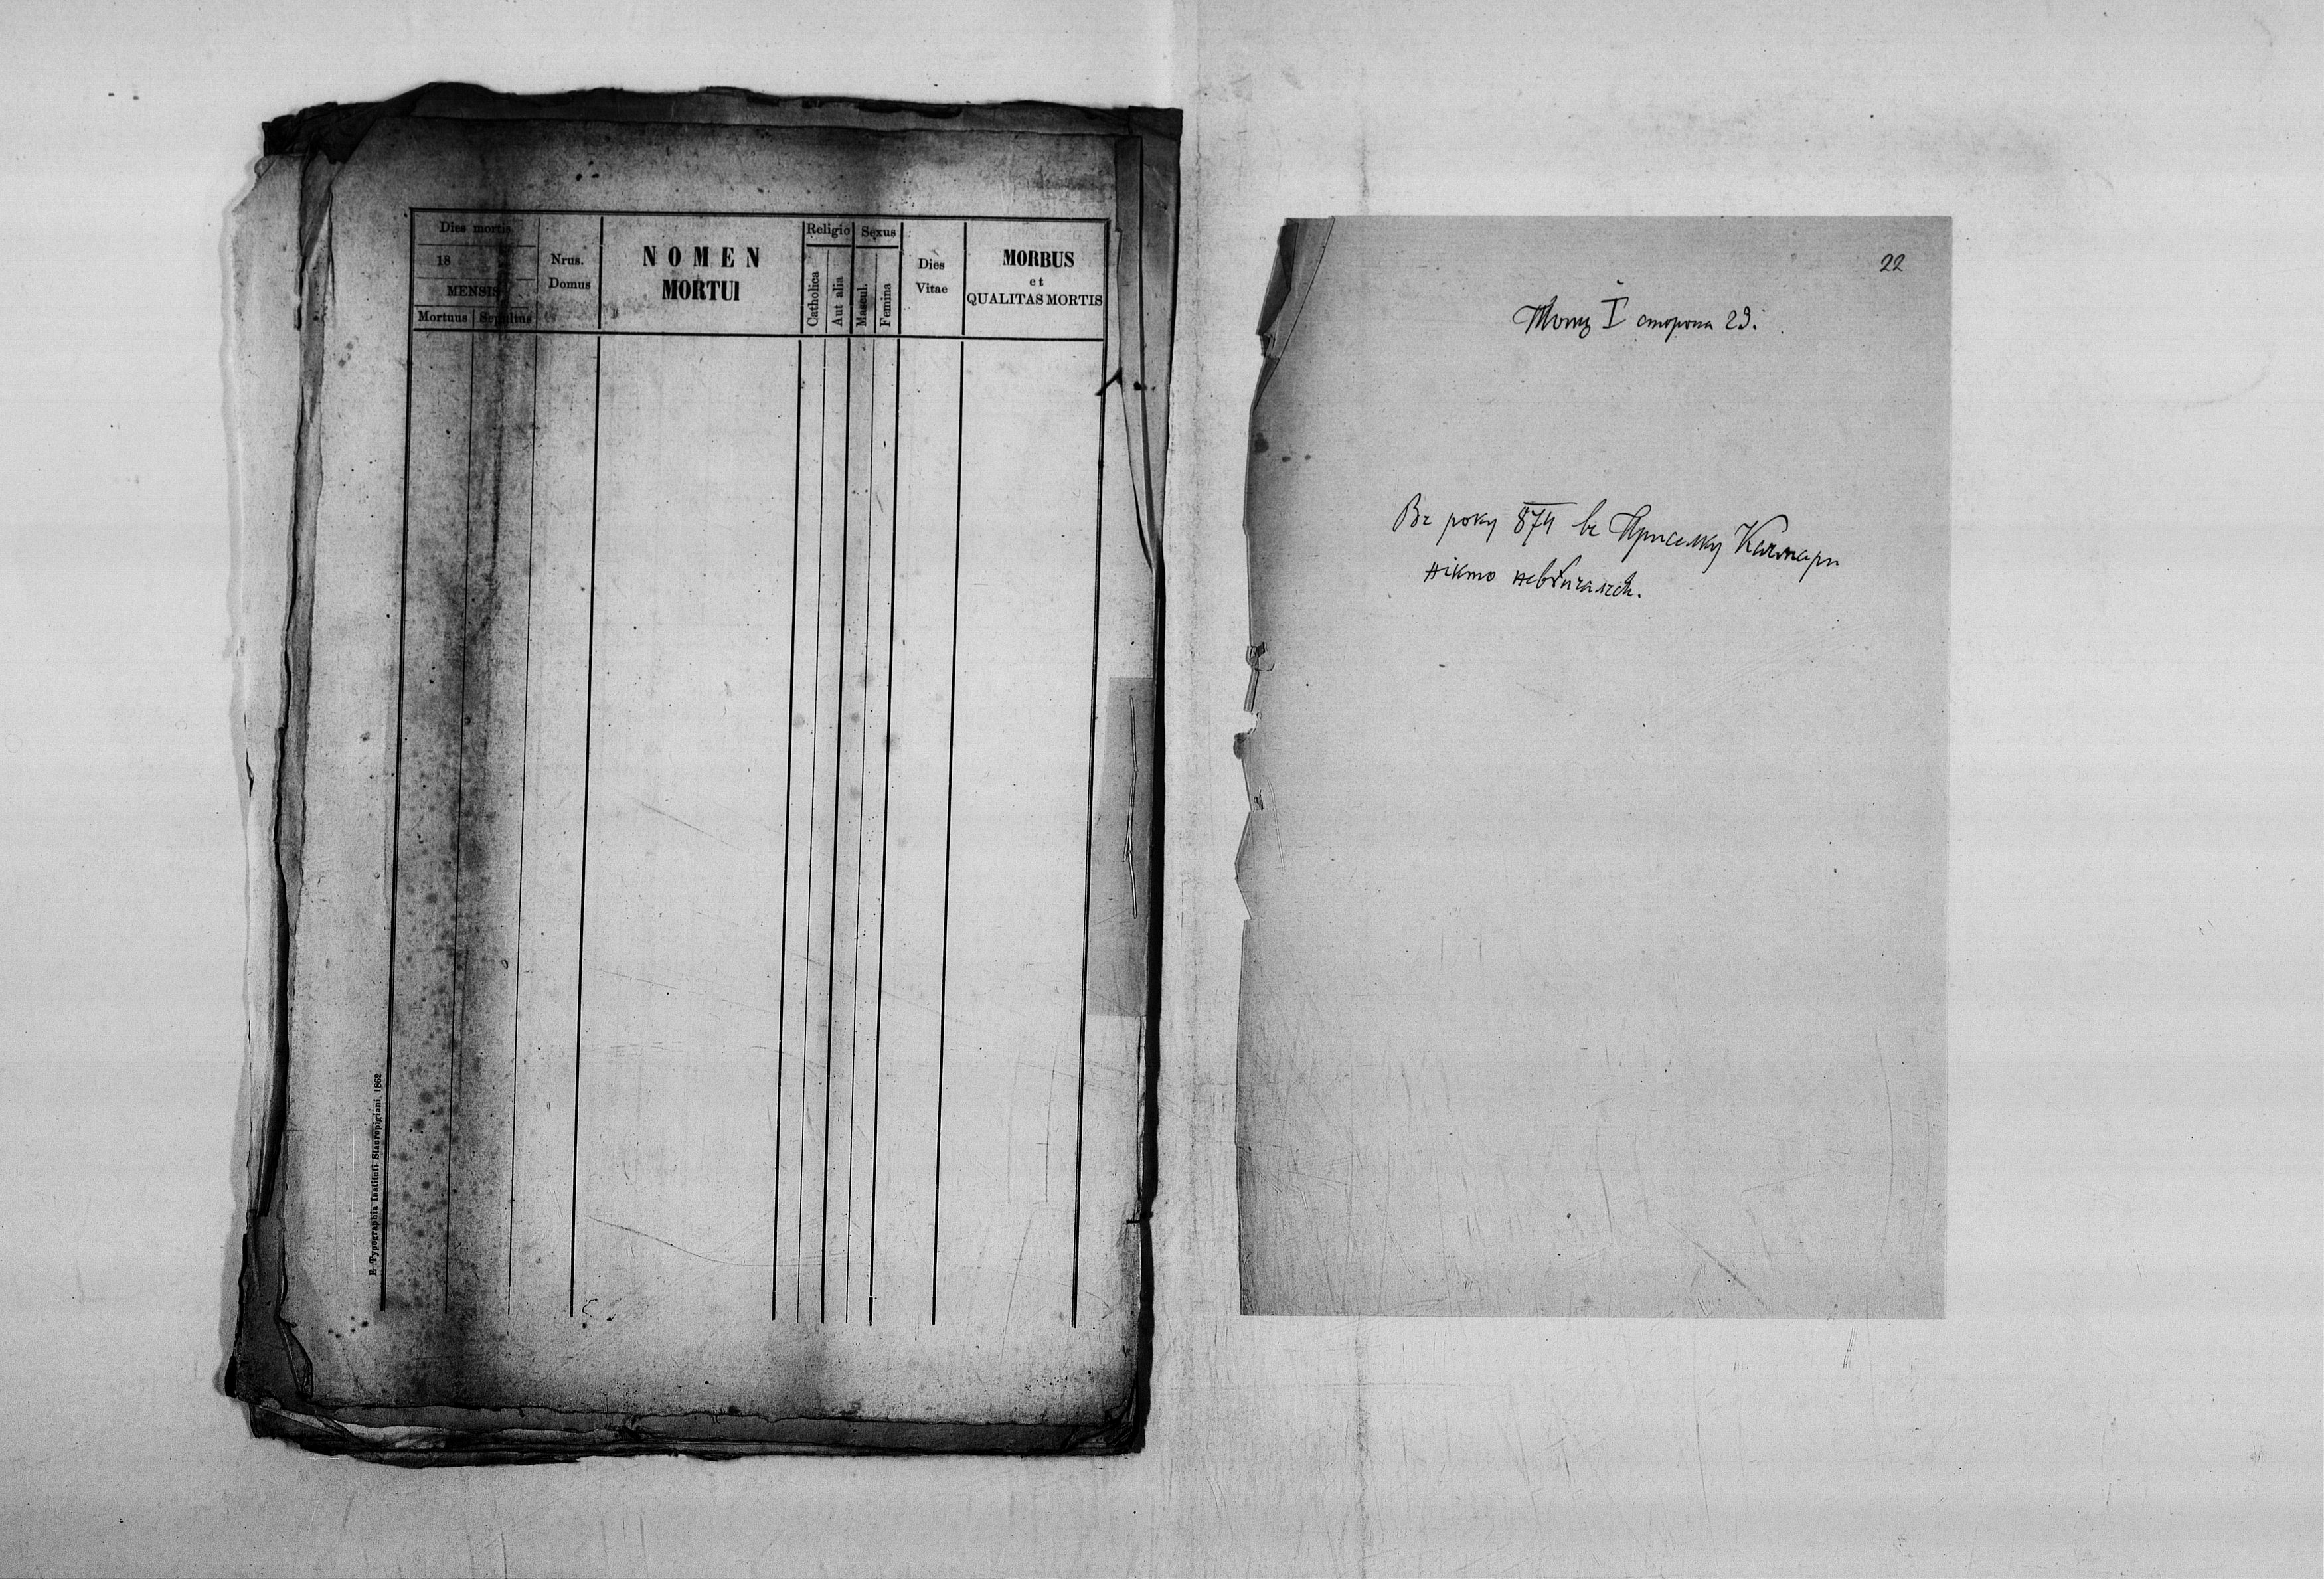 Dies mortis
18
MENSIS
Mortuus Sepultus
Nrus.
Domus
NOMEN
MORTUI
Religio
Catholica
Aut alia
Sexus
Mascul.
Femina
Dies
Vitae
MORBUS
et
QUALITAS MORTIS
E Typographia Instituti Stauropigiani. 1862
22
Томъ I сторона 23.
Въ року 874 въ Приселку
нікто невѣнчался.